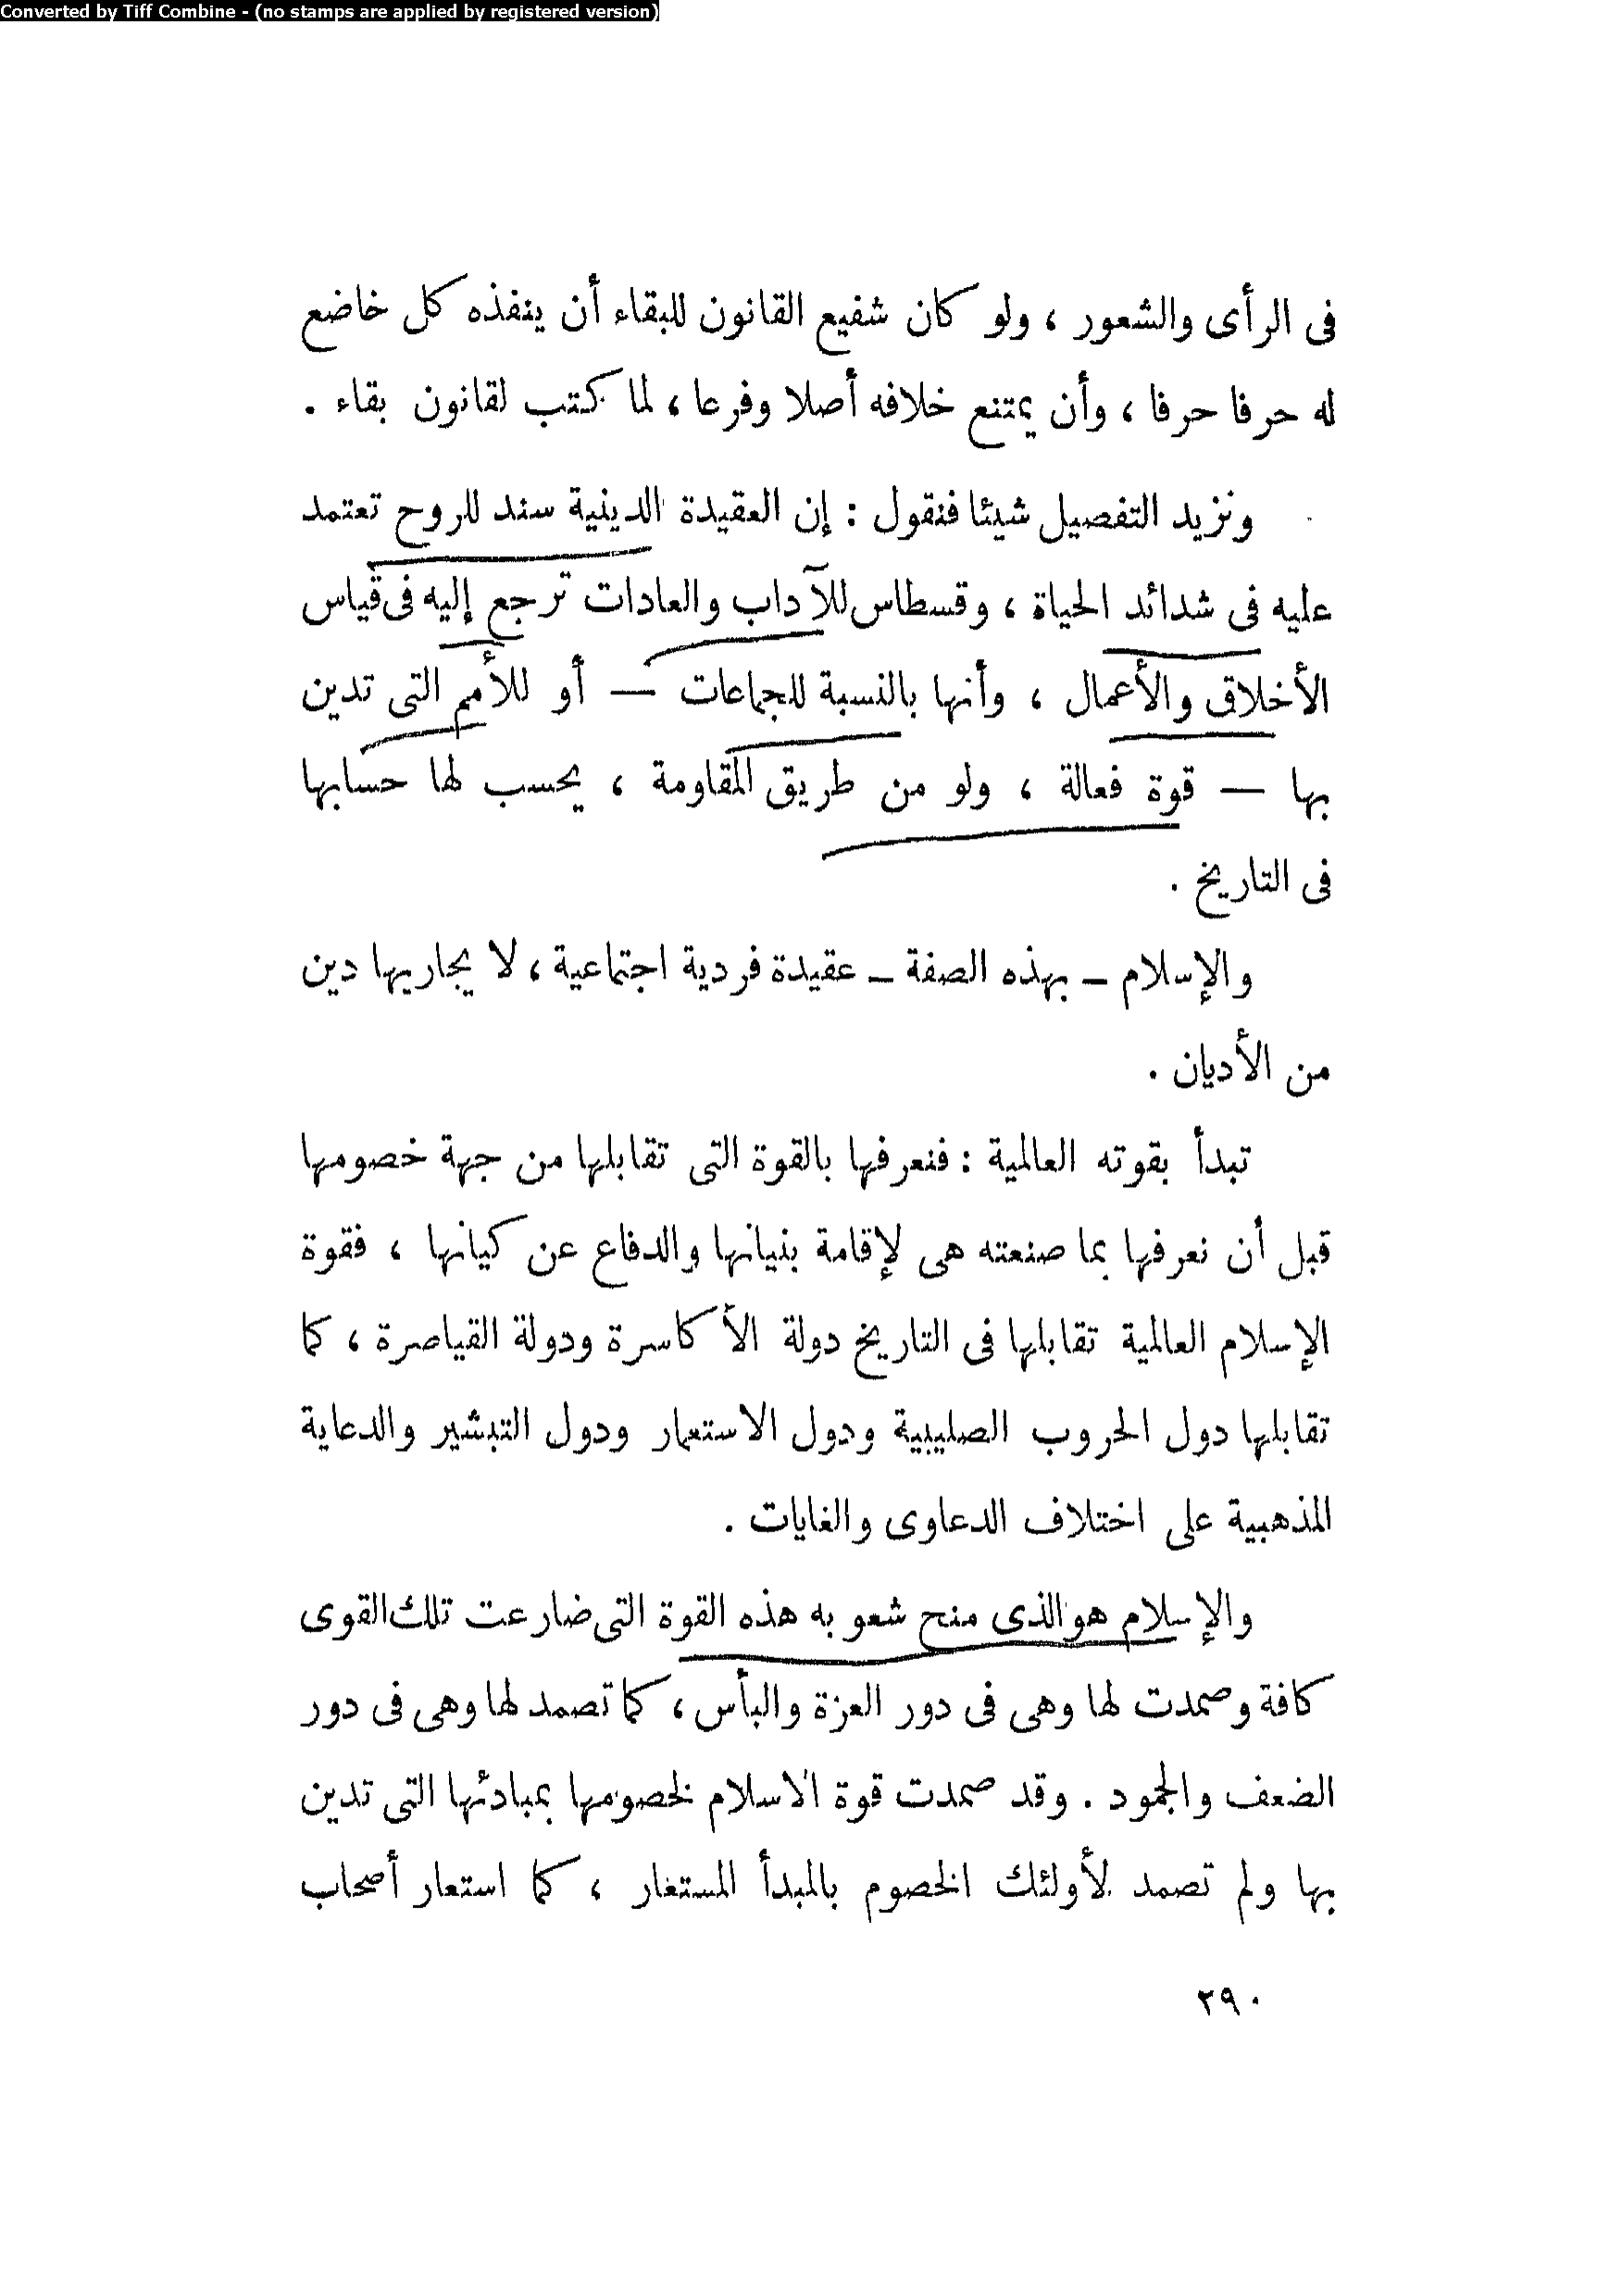 Converted by Tiff Combine - (no stamps are applied by registered version)
فى الرأى والشعور ، ولو كان شفيع القانون للبقاء أن ينفذه كل خاضع
له حرفا حرفا ، وأن يمتنع خلافه أصلا وفرعا ، لما كتب لقانون بقاء .
ونزيد التفصيل شيئا فنقول : إن العقيدة الدينية سند للروح تعتمد
عليه فى شدائد الحياة ، وقسطاس للآداب والعادات ترجع إليه فى قياس
الأخلاق والأعمال ، وأنها بالنسبة للجماعات — أو للأمم التى تدين
بها — قوة فعالة ، ولو من طريق المقاومة ، يحسب لها حسابها
فى التاريخ .
والإسلام – بهذه الصفة – عقيدة فردية اجتماعية ، لا يجاريها دين
من الأديان .
تبدأ بقوته العالمية : فنعرفها بالقوة التى تقابلها من جهة خصومها
قبل أن نعرفها بما صنعته هى لإقامة بنيانها والدفاع عن كيانها ، فقوة
الإسلام العالمية تقابلها فى التاريخ دولة الأكاسرة ودولة القياصرة ، كما
تقابلها دول الحروب الصليبية ودول الاستعمار ودول التبشير والدعاية
المذهبية على اختلاف الدعاوى والغايات .
والإسلام هو الذى منح شعوبه هذه القوة التى ضارعت تلك القوى
كافة وصمدت لها وهى فى دور العزة والبأس ، كما تصمد لها وهى فى دور
الضعف والجمود . وقد صمدت قوة الاسلام لخصومها بمبادئها التى تدين
بها ولم تصمد لأولئك الخصوم بالمبدأ المستغار ، كما استعار أصحاب
٢٩٠